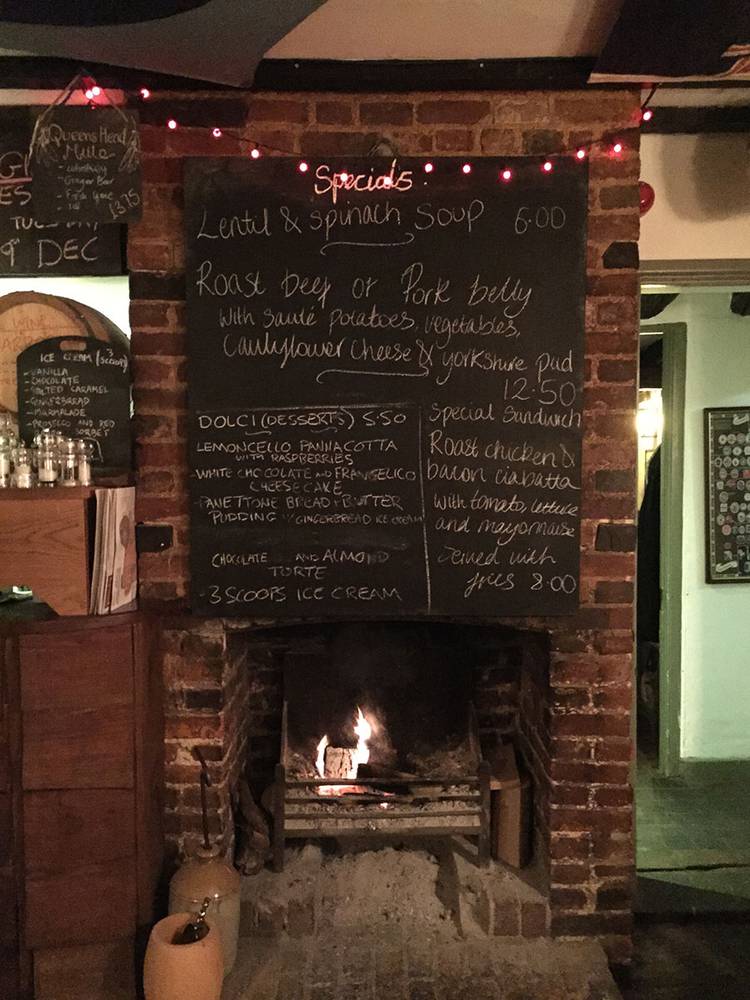 Queens Head
Mule
- Whiskey
- Ginger Beer
£3.75
ES
TUESDAY
9th DEC
WINE
ICE CREAM (3 SCOOPS)
- VANILLA
- CHOCOLATE
- SALTED CARAMEL
- GINGERBREAD
- MARMALADE
- PROSECCO AND RED
SORBET
Specials
Lentil & Spinach Soup 6.00
Roast beef or Pork belly
with sauté potatoes, vegetables,
Caulyflower cheese & yorkshire pud
12.50
DOLCI (DESSERTS) 5.50
LEMONCELLO PANNACOTTA
WITH RASPBERRIES
- WHITE CHOCOLATE AND FRANGELICO
CHEESECAKE
- PANETTONE BREAD + BUTTER
PUDDING GINGERBREAD ICE CREAM
CHOCOLATE AND ALMOND
TORTE
- 3 SCOOPS ICE CREAM
Special Sandwich
Roast chicken &
bacon ciabatta
with tomato, lettuce
and mayonnaise
served with
fries 8.00